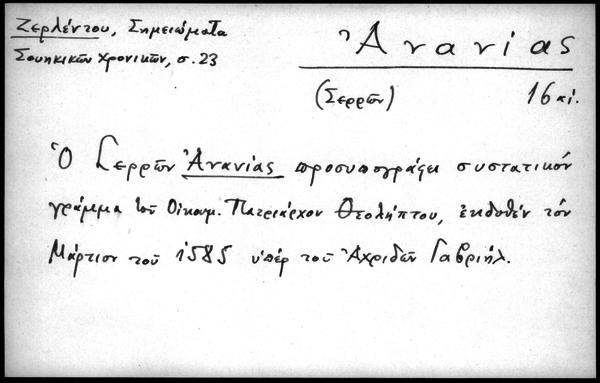 Ζερλέντου, Σημειώματα
Σουηκικῶν χρονικῶν, σ. 23
Ἀνανίας
(Σερρῶν) 16 αἰ.
Ὁ Σερρῶν Ἀνανίας προσυπογράφει συστατικόν
γράμμα τοῦ Οἰκουμ. Πατριάρχου Θεολήπτου, ἐκδοθέν τόν
Μάρτιον τοῦ 1585 ὑπέρ τοῦ Ἀχριδῶν Γαβριήλ.